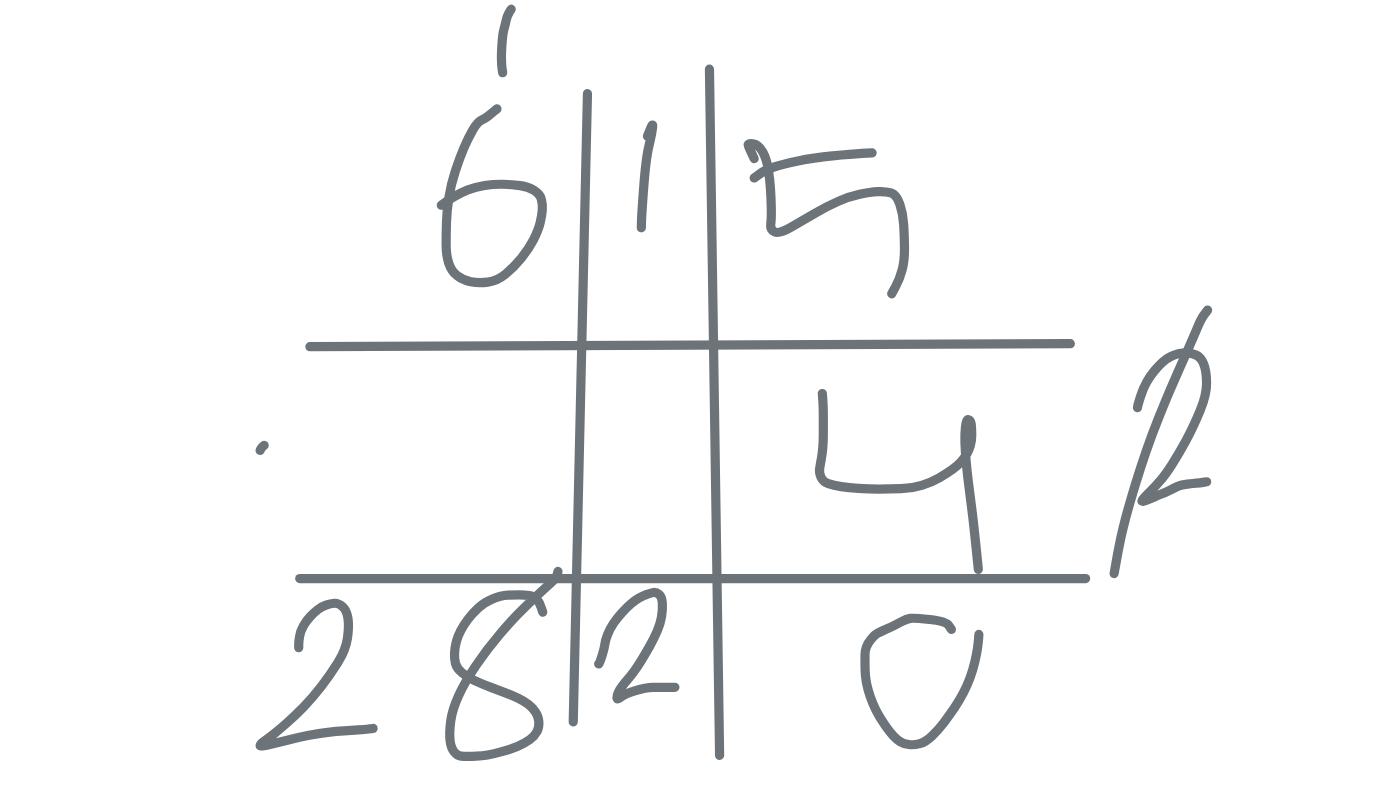 1
6 1 5
4 2
2 8 2 0